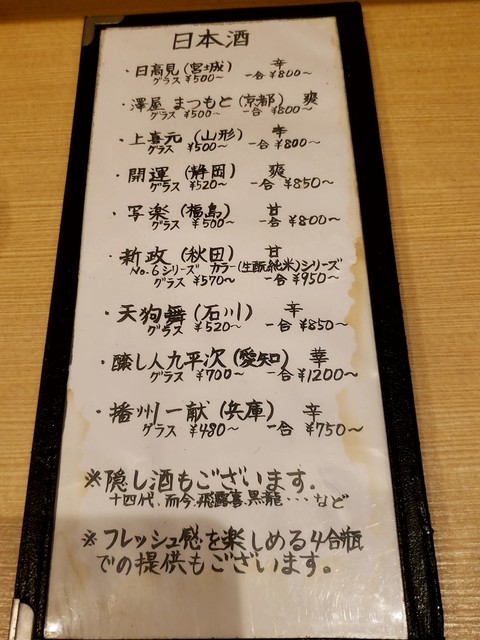 日本酒
・日高見(宮城) 辛
グラス ¥500〜 一合 ¥800〜
・澤屋 まつもと(京都) 爽
グラス ¥500〜 一合 ¥800〜
・上喜元(山形) 辛
グラス ¥500〜 一合 ¥800〜
・開運(静岡) 爽
グラス ¥520〜 一合 ¥850〜
・写楽(福島) 甘
グラス ¥500〜 一合 ¥800〜
・新政(秋田) 甘
No.6シリーズ カラー(生酛純米)シリーズ
グラス ¥570〜 一合 ¥950〜
・天狗舞(石川) 辛
グラス ¥520〜 一合 ¥850〜
・醸し人九平次(愛知) 華
グラス ¥700〜 一合 ¥1200〜
・播州一献(兵庫) 辛
グラス ¥480〜 一合 ¥750〜
※隠し酒もございます。
十四代、而今、飛露喜、黒龍…など
※フレッシュ感を楽しめる4合瓶
での提供もございます。